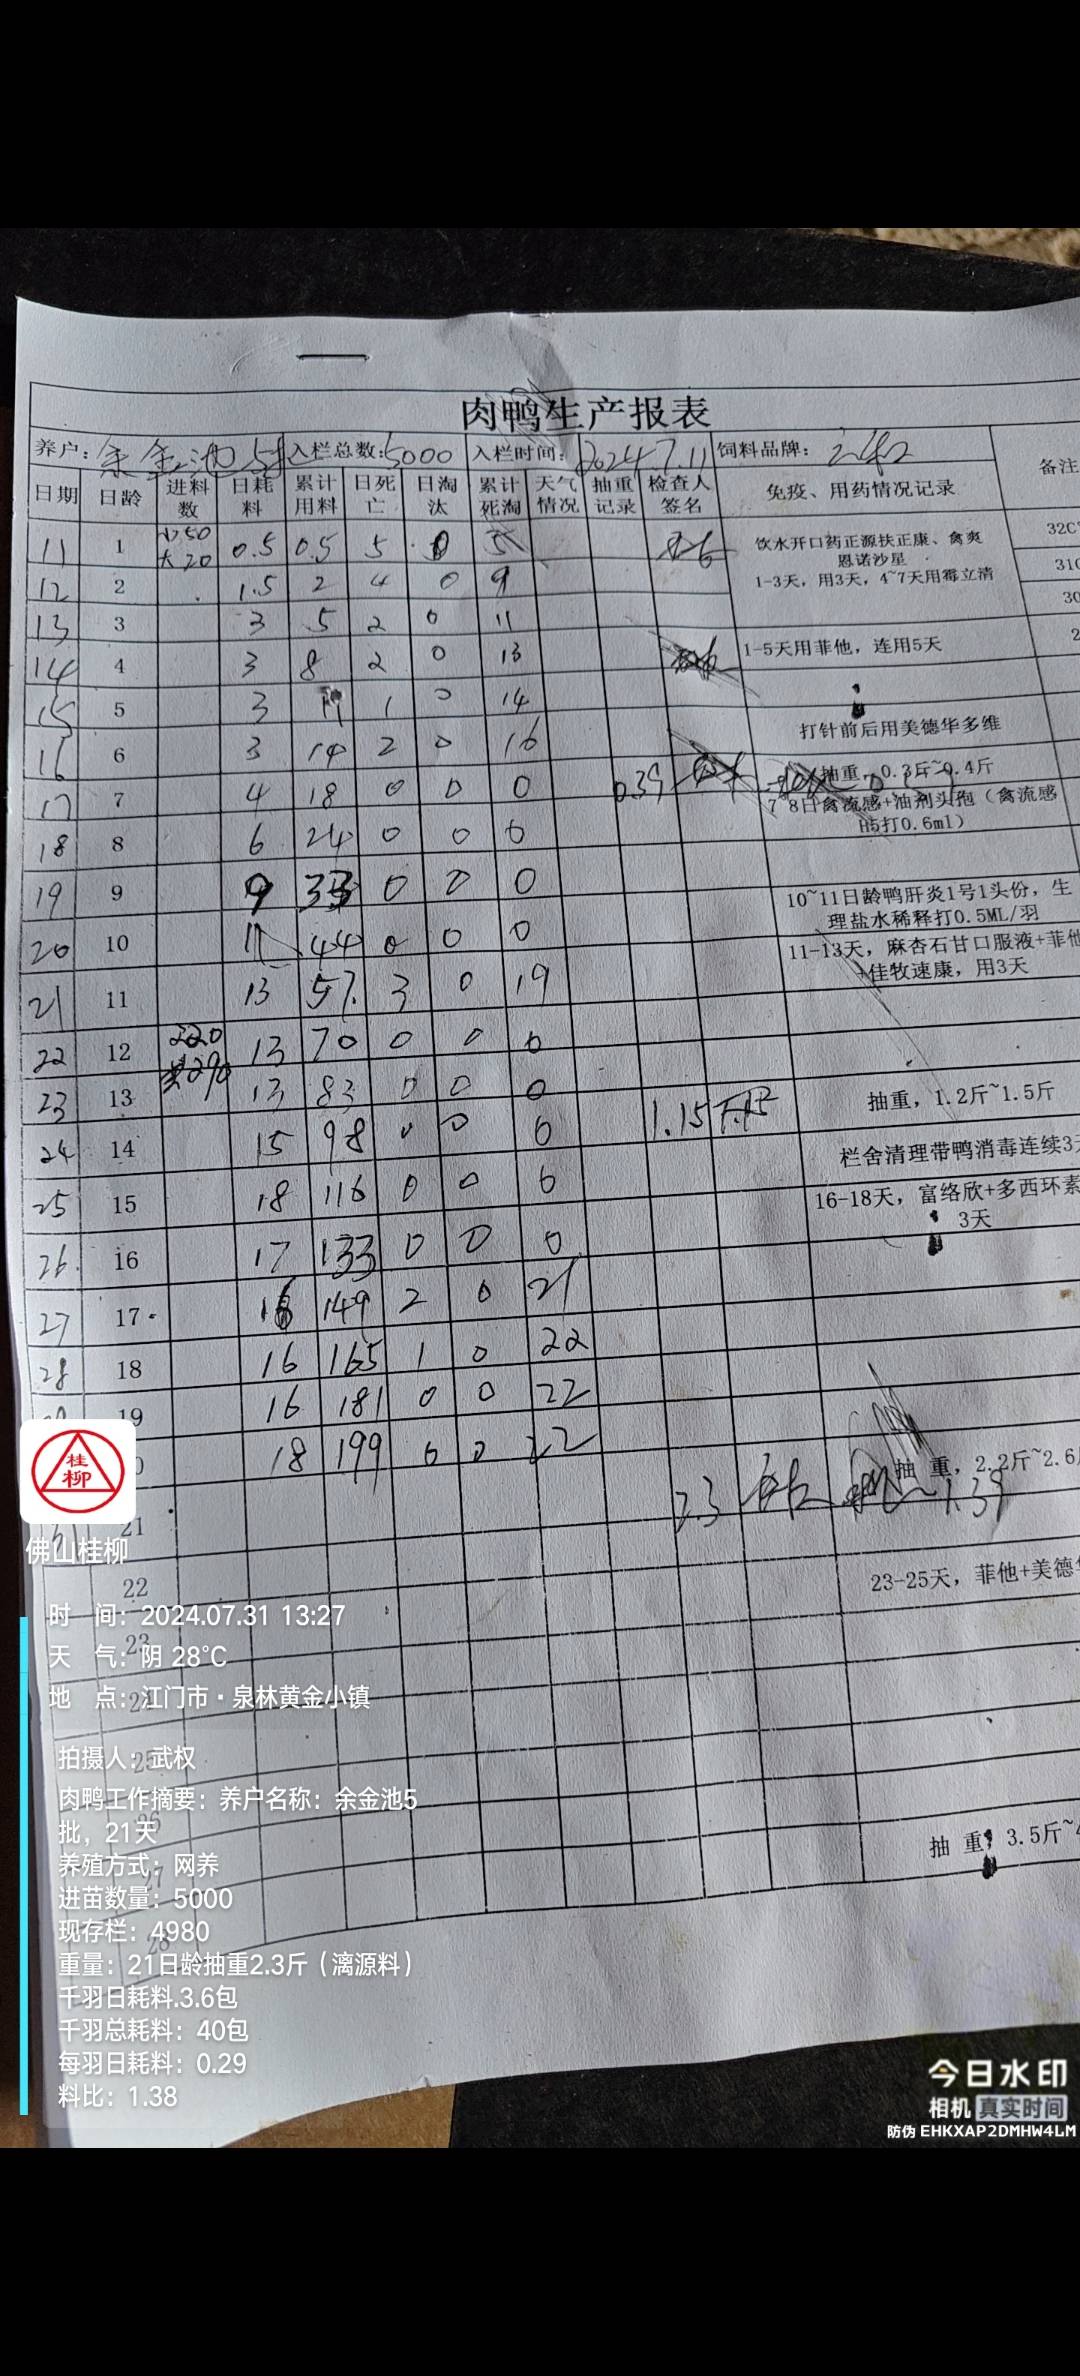 肉鸭生产报表
养户: 余金池5批 入栏总数:5000 入栏时间: 2024.7.11 饲料品牌:
日期 日龄 进料数 日耗料 累计用料 日死亡 日淘汰 累计死淘 天气情况 抽重记录 检查人签名 免疫、用药情况记录 备注
11 1 小50 大20 0.5 0.5 5 0 5 饮水开口药正源扶正康、禽爽 32C
恩诺沙星
12 2 1.5 2 4 0 9 1-3天，用3天，4~7天用霉立清 31C
13 3 3 5 2 0 11 30
14 4 3 8 2 0 13 1-5天用菲他，连用5天 2
15 5 3 11 1 0 14
16 6 3 14 2 0 16 打针前后用美德华多维
抽重，0.3斤~0.4斤
17 7 4 18 0 0 0 0.39 7~8日禽流感+油剂头孢（禽流感
H5打0.6ml）
18 8 6 24 0 0 0
19 9 9 33 0 0 0 10~11日龄鸭肝炎1号1头份，生
理盐水稀释打0.5ML/羽
20 10 11 44 0 0 0 11-13天，麻杏石甘口服液+菲他
+佳牧速康，用3天
21 11 13 57 3 0 19
22 12 220 共290 13 70 0 0 0
23 13 13 83 0 0 0 抽重，1.2斤~1.5斤
24 14 15 98 0 0 0 1.15
栏舍清理带鸭消毒连续3天
25 15 18 116 0 0 0 16-18天，富络欣+多西环素
3天
26 16 17 133 0 0 0
27 17 16 149 2 0 21
28 18 16 165 1 0 22
19 16 181 0 0 22
18 199 0 0 22 抽 重，2.2斤~2.6
21 2.3 1.39
22 23-25天，菲他+美德
23
24
25
26
27 抽 重，3.5斤~
28
桂柳
佛山桂柳
时 间：2024.07.31 13:27
天 气：阴 28°C
地 点：江门市·泉林黄金小镇
拍摄人：武权
肉鸭工作摘要：养户名称：余金池5
批，21天
养殖方式：网养
进苗数量：5000
现存栏：4980
重量：21日龄抽重2.3斤（漓源料）
千羽日耗料.3.6包
千羽总耗料：40包
每羽日耗料：0.29
料比：1.38
今日水印
相机 真实时间
防伪 EHKXAP2DMHW4LM